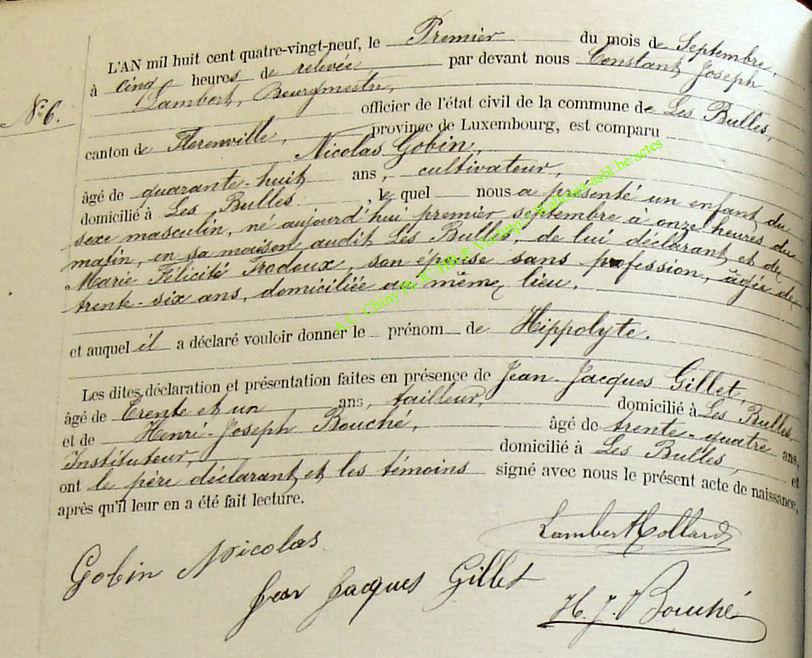 L'AN mil huit cent quatre-vingt-neuf, le Premier du mois de Septembre,
à cinq heures de relevée, par devant nous Constant Joseph
Lambert, Bourgmestre,
N° 6.
officier de l'état civil de la commune de Les Bulles,
canton de Florenville, province de Luxembourg, est comparu
Nicolas Gobin,
âgé de quarante-huit ans, cultivateur,
domicilié à Les Bulles, le quel nous a présenté un enfant du
sexe masculin, né aujourd'hui premier septembre à onze heures du
matin, en sa maison audit Les Bulles, de lui déclarant et de
Marie Félicité Frodoux, son épouse sans profession, âgée de
trente-six ans, domiciliée au même lieu.
et auquel il a déclaré vouloir donner le prénom de Hippolyte.
Les dites déclaration et présentation faites en présence de Jean-Jacques Gillet,
âgé de trente et un ans, tailleur, domicilié à Les Bulles
et de Henri-Joseph Bouché, âgé de trente-quatre ans,
Instituteur, domicilié à Les Bulles, et
ont le père déclarant et les témoins signé avec nous le présent acte de naissance,
après qu'il leur en a été fait lecture.
Gobin Nicolas
Jean Jacques Gillet
H. J. Bouché